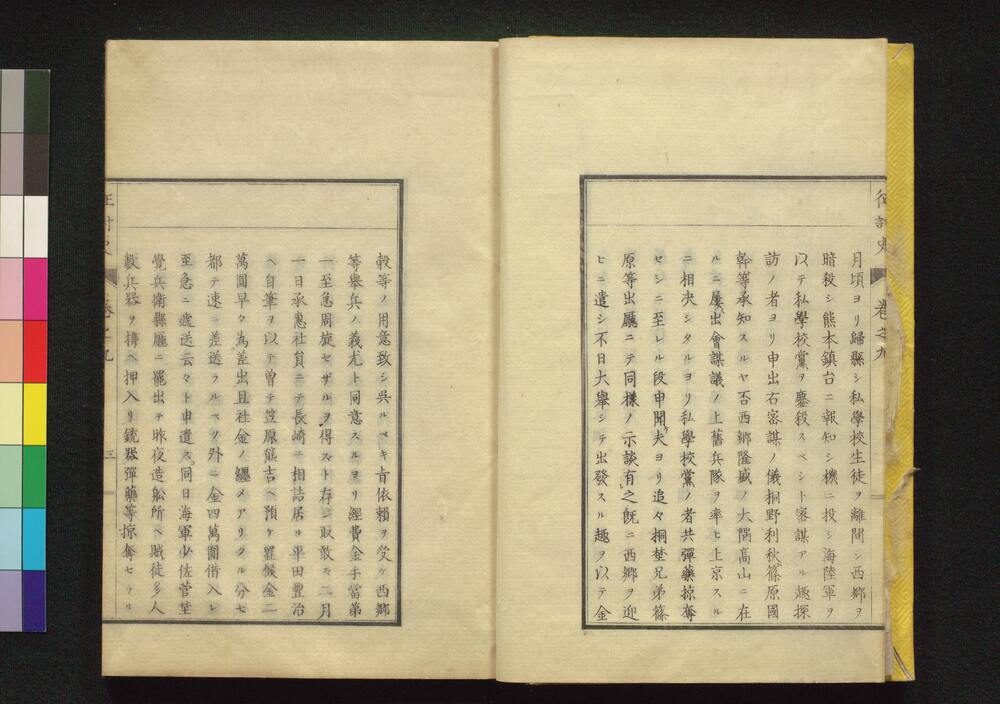 征討史 巻之九
月頃ヨリ歸縣シ私學校生徒ヲ離間シ西郷ヲ
暗殺シ熊本鎮台ニ報知シ機ニ投シ海陸軍ヲ
以テ私學校黨ヲ鏖殺スヘシト密謀アル趣探
訪ノ者ヨリ申出右密謀ノ儀桐野利秋篠原國
幹等承知スルヤ否西郷隆盛ノ大隅高山ニ在
ルニ屡出會謀議ノ上舊兵隊ヲ率ヒ上京スル
ニ相决シタルヨリ私學校黨ノ者共彈藥掠奪
セシニ至レル段申聞ケ夫ヨリ追々桐埜兄弟篠
原等出廳ニテ同樣ノ示談有之既ニ西郷ヲ迎
ヒニ遣シ不日大舉シテ出發スル趣ヲ以テ金
穀等ノ用意致シ呉ルベキ旨依頼ヲ受ケ西郷
等舉兵ノ義尤ト同意スルヨリ經費金手當第
一至急周旋セザルヲ得スト存シ取敢ス二月
一日承惠社貟ニテ長崎ニ相詰居リ平田豊治
ヘ自筆ヲ以テ曽テ笠原熊吉ヘ預ケ置候金二
萬圓早々為差出且社金ノ纏メアリタル分モ
都テ速ニ差送ラルベク外ニ金四萬圓借入レ
至急ニ遞送云々ト申遣ス同日海軍少佐菅埜
覺兵衛縣廳ニ罷出テ昨夜造舩所ヘ賊徒多人
數兵器ヲ携ヘ押入リ銃器彈藥等掠奪セラル
征討史 巻之九 三